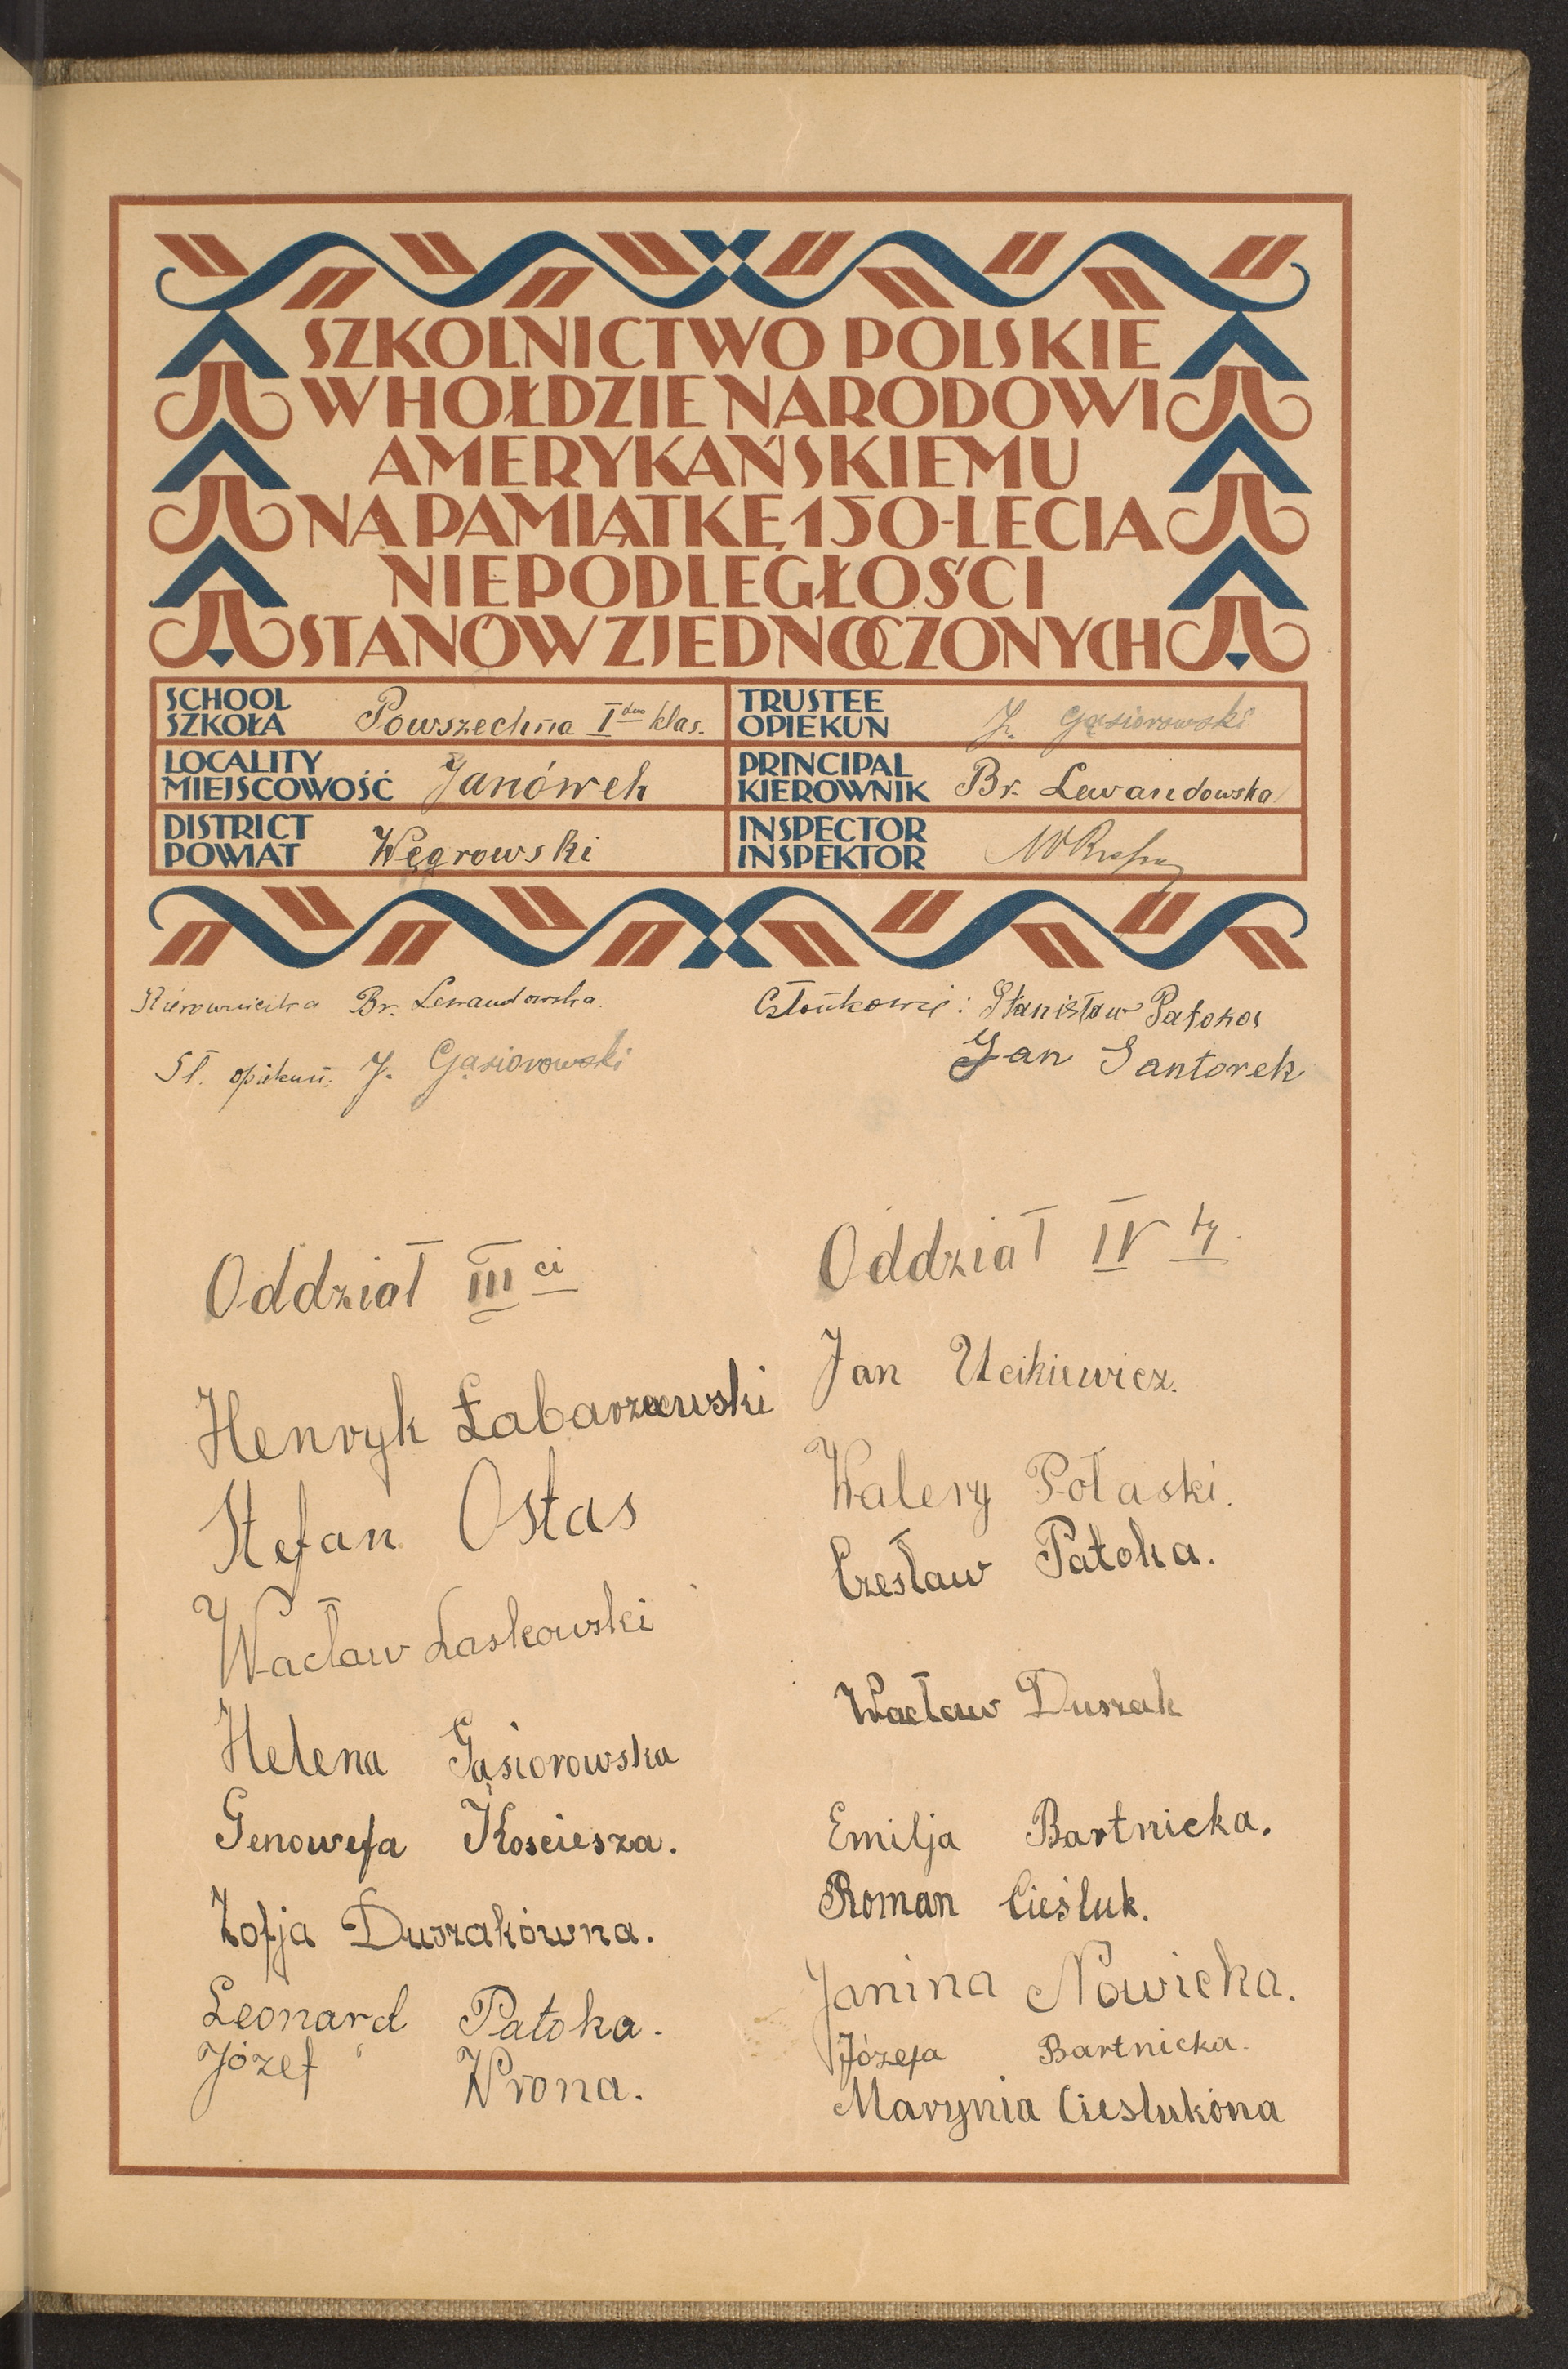 SZKOLNICTWO POLSKIE
W HOŁDZIE NARODOWI
AMERYKAŃSKIEMU
NA PAMIĄTKĘ 150-LECIA
NIEPODLEGŁOŚCI
STANÓW ZJEDNOCZONYCH
SCHOOL
SZKOŁA Powszechna I klas.
TRUSTEE
OPIEKUN J. Gąsiorowski
LOCALITY
MIEJSCOWOŚĆ Janówek
PRINCIPAL
KIEROWNIK Br. Lewandowska
DISTRICT
POWIAT Węgrowski
INSPECTOR
INSPEKTOR
Kierowniczka Br. Lewandowska.
Członkowie: Stanisław Patoka
Jan Santorek
St. opiekun: J. Gąsiorowski
Oddział III ci
Henryk Łabarzewski
Stefan Ostas
Wacław Laskowski
Helena Gąsiorowska
Genowefa Kosciesza.
Zofja Duszakówna.
Leonard Patoka.
Józef Wrona.
Oddział IV ty.
Jan Ucikiewicz.
Walery Połaski.
Czesław Patoka.
Wacław Duszak
Emilja Bartnicka.
Roman Cieśluk.
Janina Nowicka.
Józefa Bartnicka.
Marynia Cieslukóna